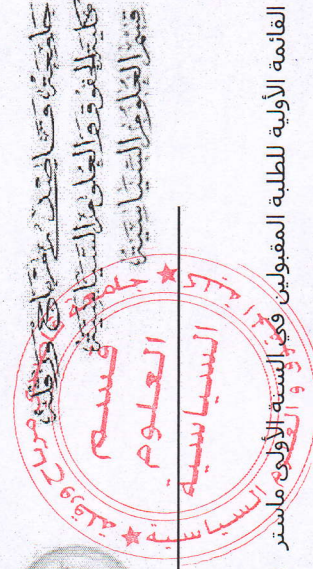 جامعة قاصدي مرباح ورقلة
كلية الحقوق والعلوم السياسية
قسم العلوم السياسية
القائمة الأولية للطلبة المقبولين في السنة الأولى ماستر
قسم
العلوم
السياسية